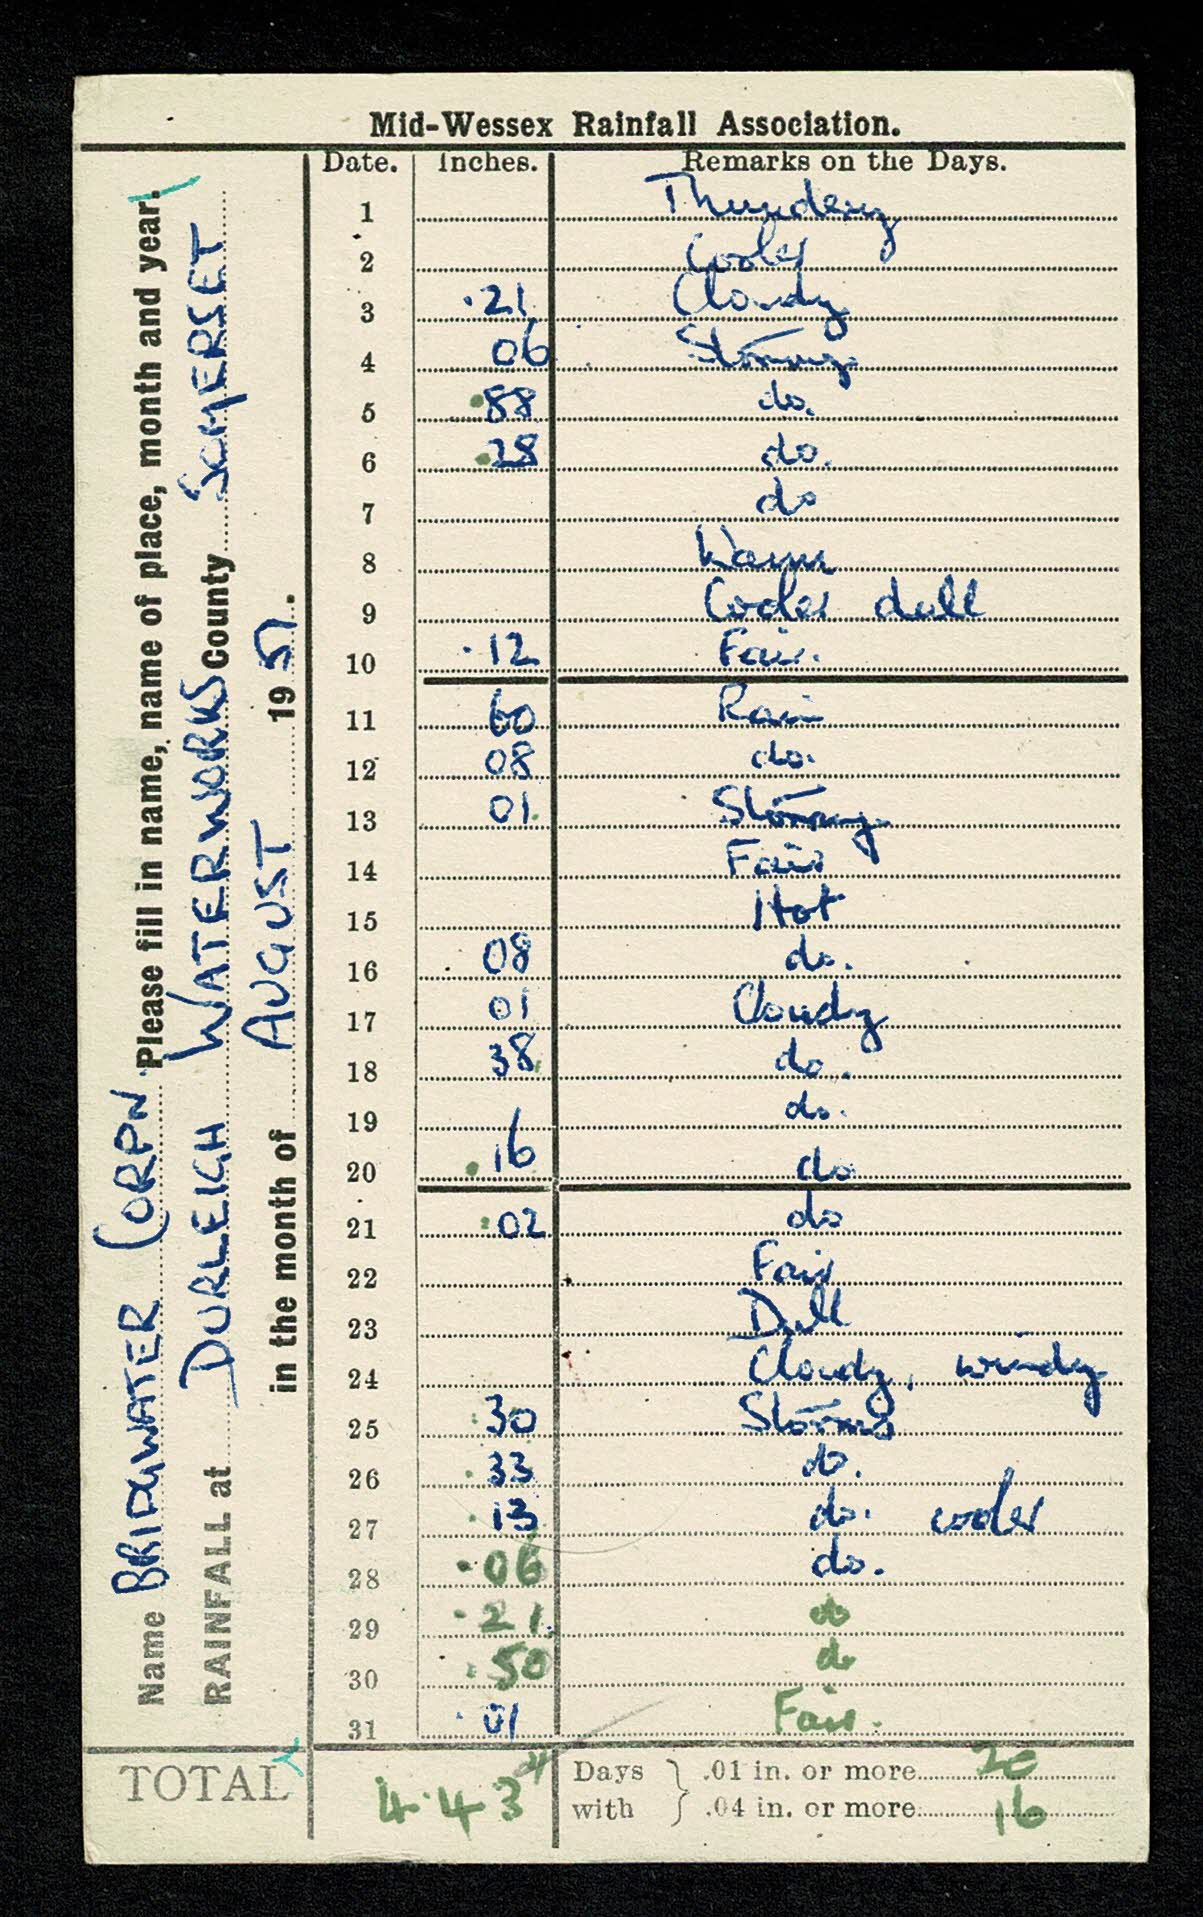 Mid-Wessex Rainfall Association.
Name BRIDGWATER CORPN. Please fill in name, name of place, month and year.
RAINFALL at DURLEIGH WATERWORKS County SOMERSET
in the month of AUGUST 19
Date. Inches. Remarks on the Days.
1 Thundery
2 Cooler
3 .21 Cloudy
4 06 Stormy
5 .88 do.
6 .28 do.
7 do
8 Warm
9 Cooler dull
10 .12 Fair.
11 60 Rain
12 08 do.
13 01. Stormy
14 Fair
15 Hot
16 .08 do.
17 01 Cloudy
18 38. do.
19 do.
20 .16 do
21 .02 do
22 Fair
23 Dull
24 Cloudy, windy
25 .30 Stormy
26 .33 do.
27 .13 do. cooler
28 .06 do.
29 .21 do
30 .50 do
31 .01 Fair.
TOTAL 4.43"
Days with } .01 in. or more 20
.04 in. or more 16